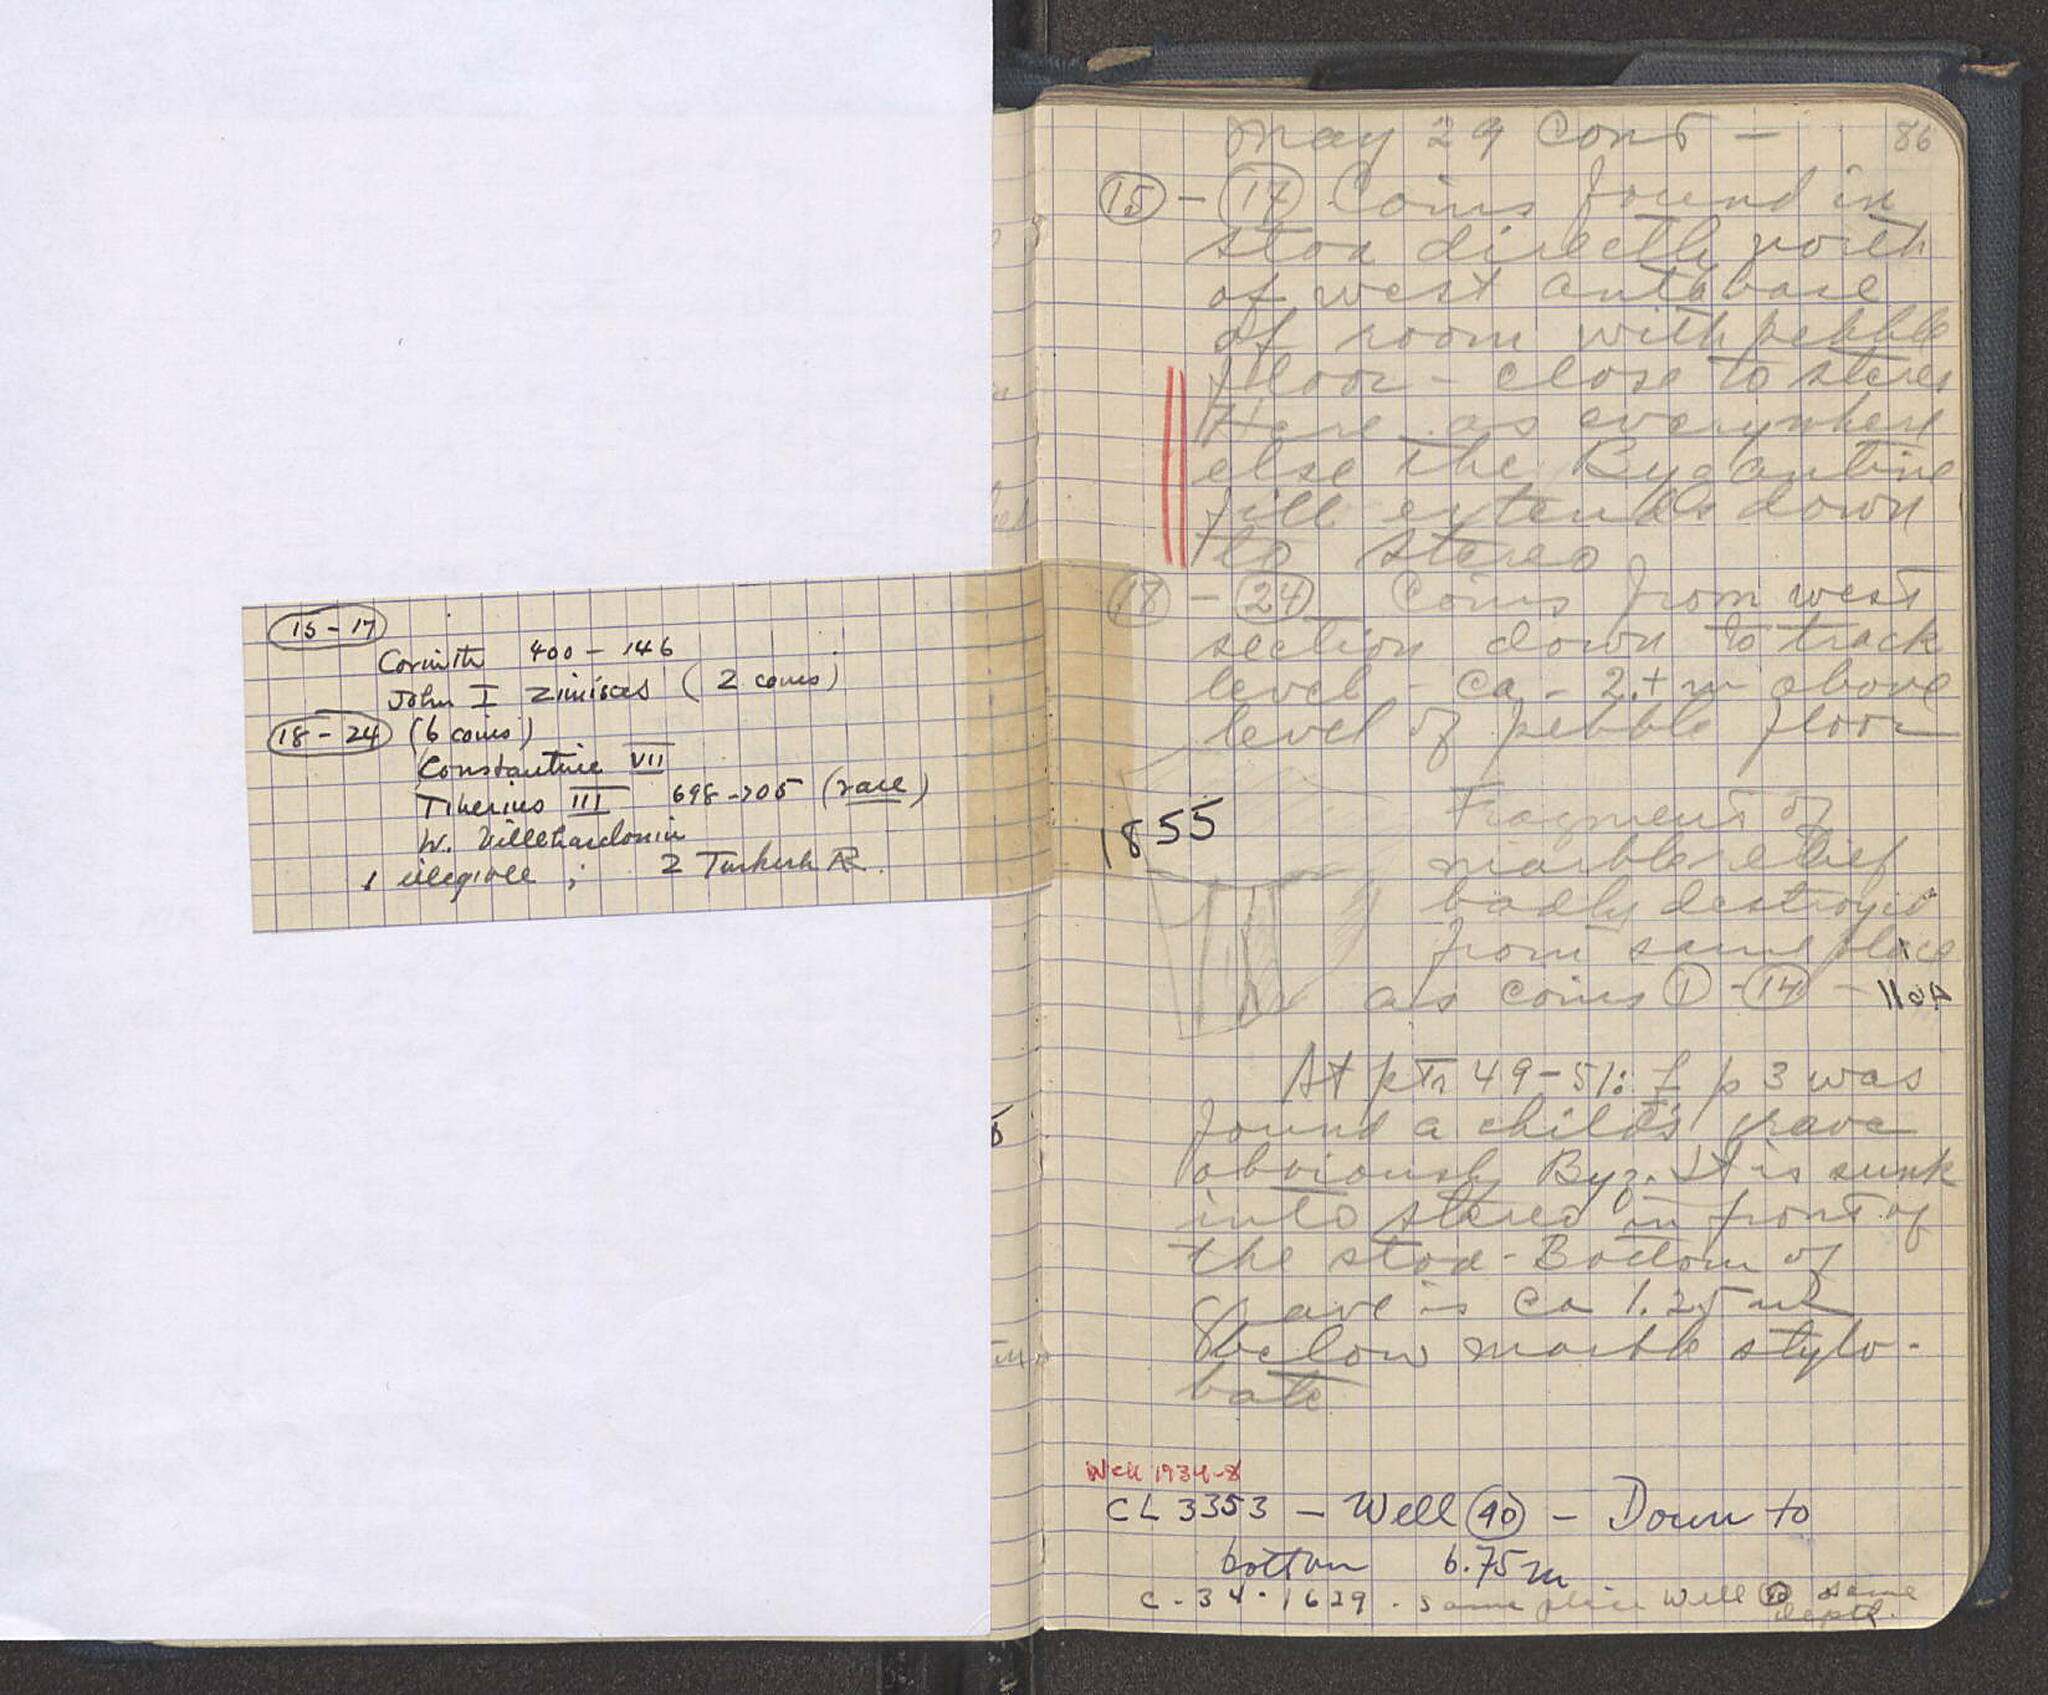 15 - 17
Corinth 400 - 146
John I Zimisces (2 coins)
18 - 24 (6 coins)
Constantine VII
Tiberius III 698-705 (rare)
W. Villehardouin
1 illegible ; 2 Turkish AR.
May 29 Cont - 86
15 - 17 Coins found in
stoa directly north
of west anta base
of room with pebble
floor - close to stereo
Here as everywhere
else the Byzantine
fill extends down
to stereo
18 - 24 Coins from west
section down to track
level - ca - 2.+ m above
level of pebble floor
1855
Fragment of
marble relief
badly destroyed
from same place
as coins 1 - 14 -
At pts 49-51: f p 3 was
found a child's grave
obviously Byz. It is sunk
into stereo in front of
the stoa - Bottom of
grave is ca 1.25 m
below marble stylo-
bate
Well 1934-8
CL 3353 - Well 40 - Down to
bottom 6.75 m
C-34-1629. Same place Well same
depth.